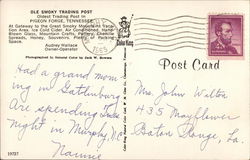 OLE SMOKY TRADING POST
Oldest Trading Post in
PIGEON FORGE, TENNESSEE
At Gateway to the Great Smoky Mountains Vacation
ion Area. Ice Cold Cider. Air Conditioned.
Blown Glass, Mountain Crafts, Pottery,
Spreads, Honey, Souvenirs. Plenty of Parking
Space.
Audrey Wallace
Owner-Operator
Photographed in Natural Color by Jack W. Bowers
Had a grand morn
ing in Gatlinburg
Are spending the
night in Murphy, N.C.
Nannie
19727
1965
Post Card
Mrs. John Walton
435 Mayflower
Baton Rouge, La.